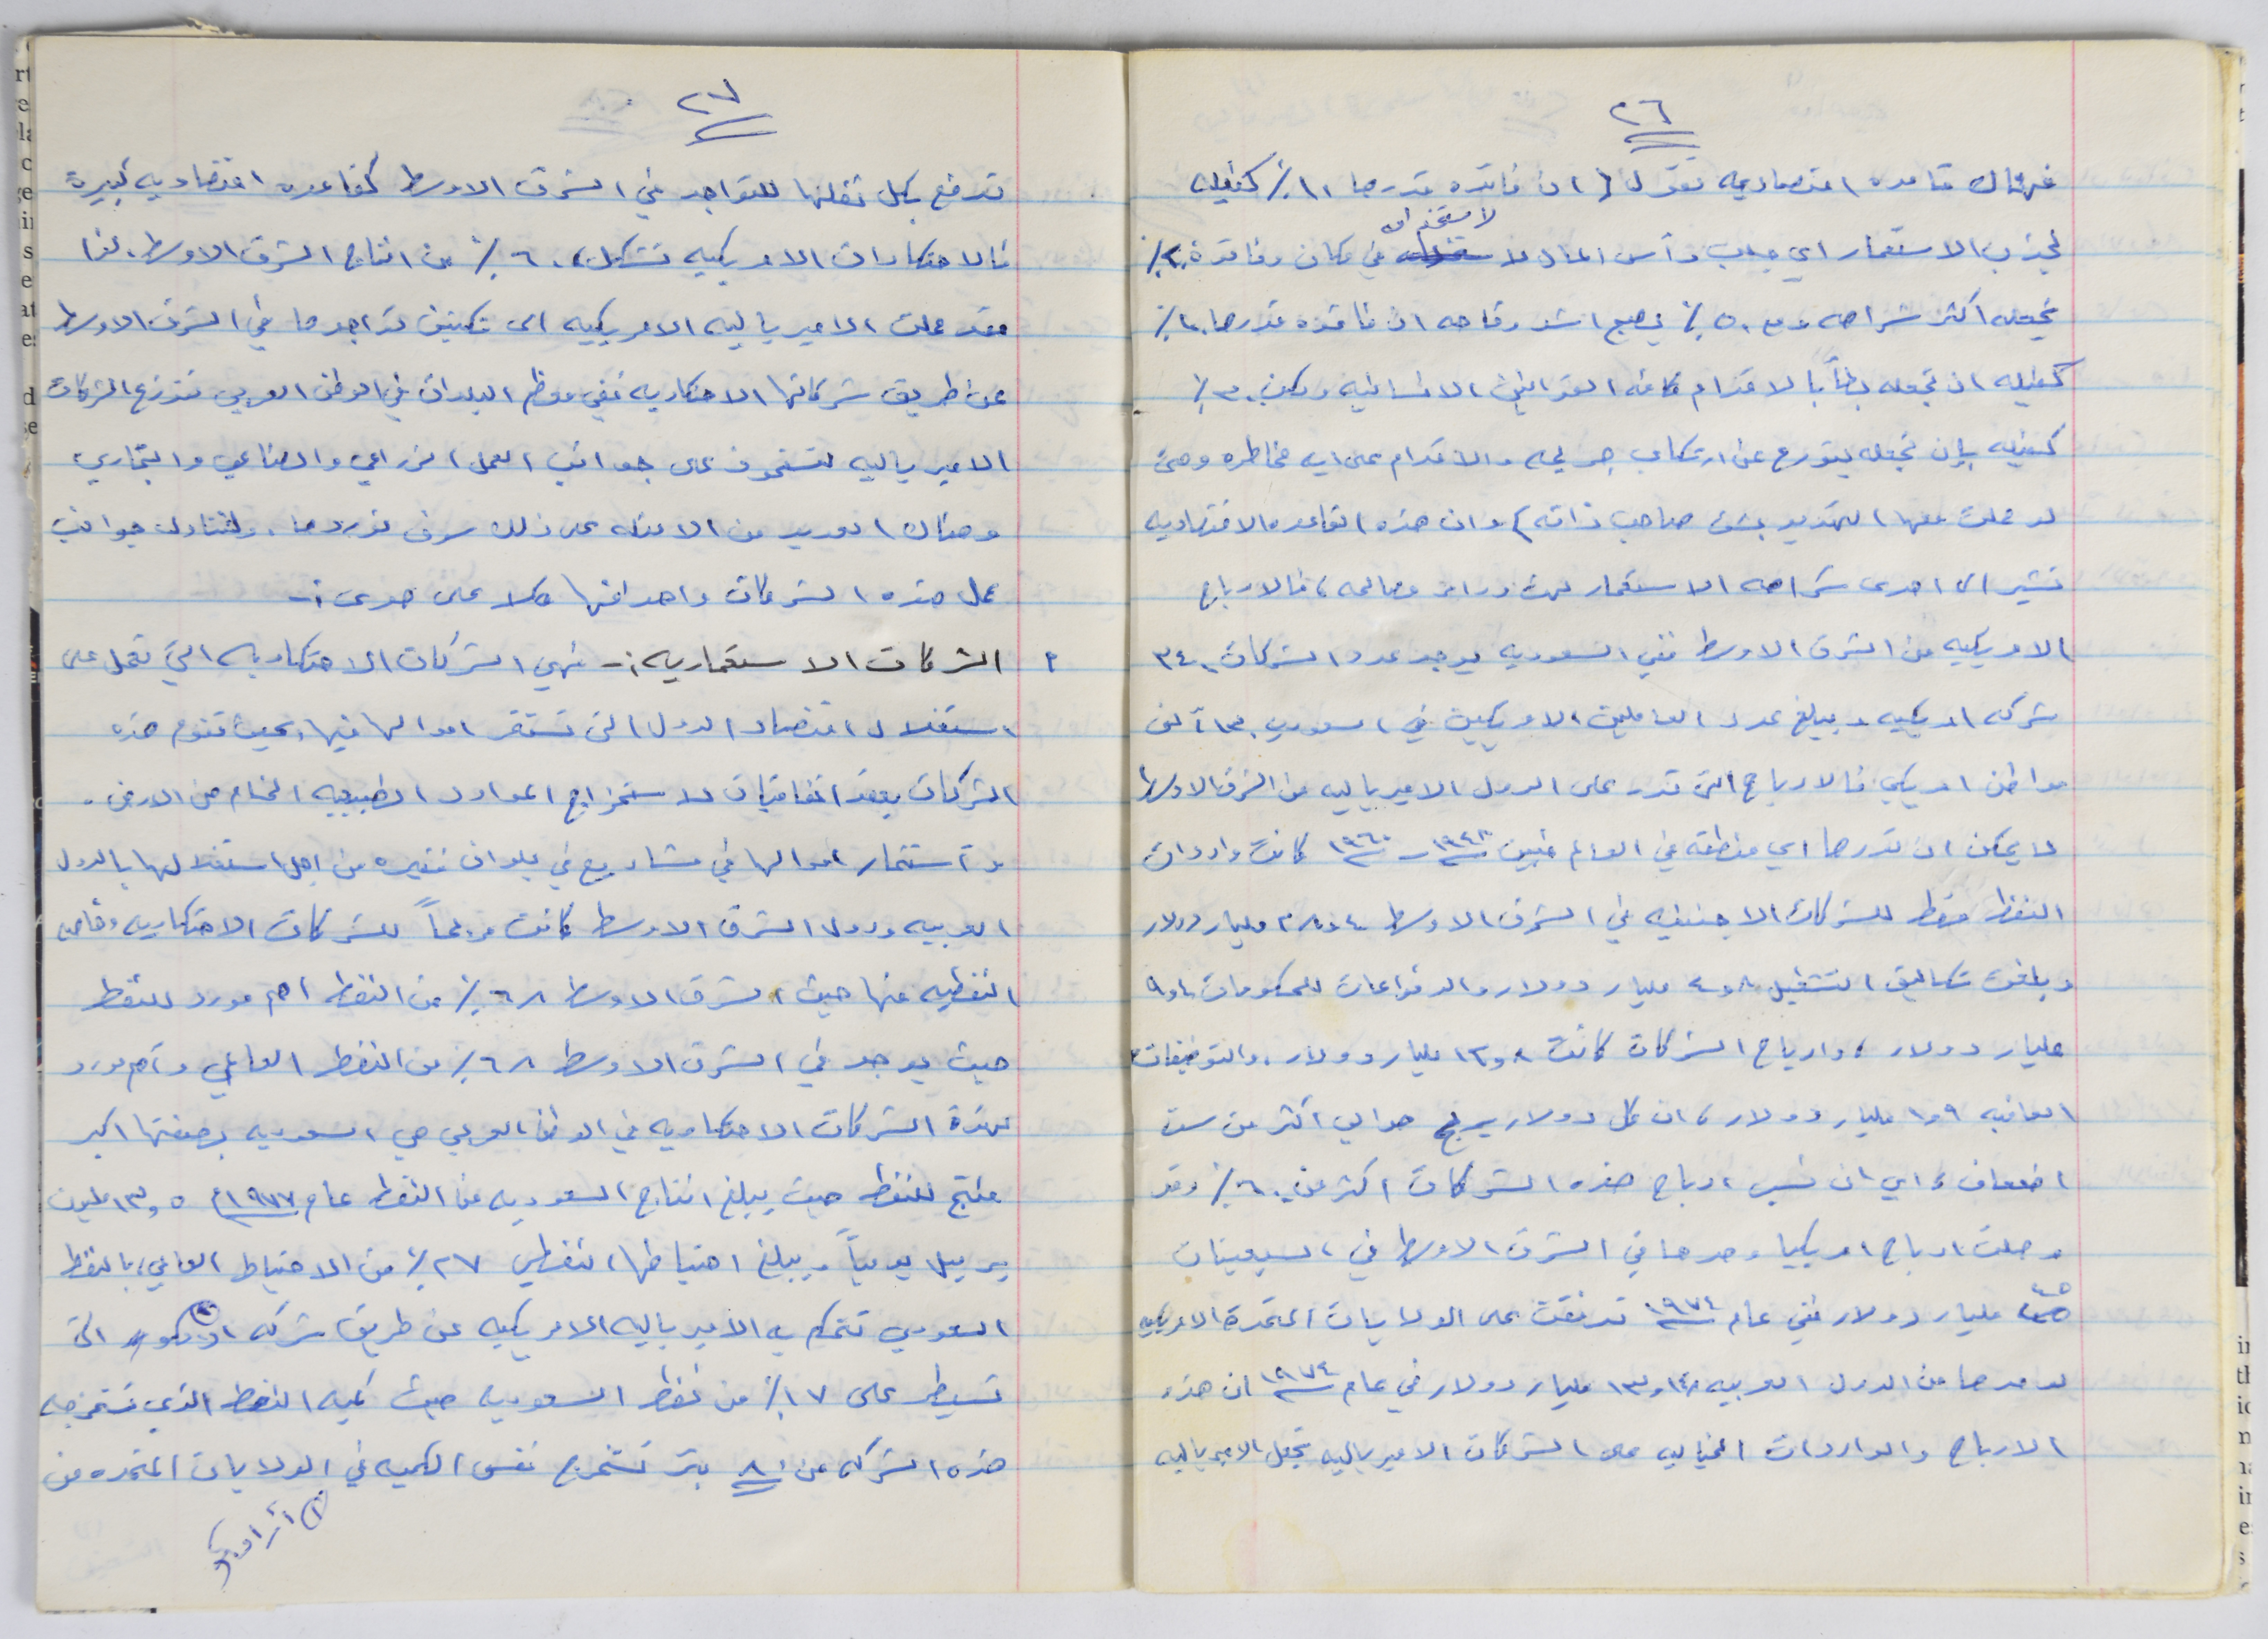 ٢٦
فهناك قاعده اقتصاديه تقول (ان فائده قدرها ١٠٪ كفيله
لاستخدامه
لجذب الاستعمار اي جلب رأس المال في مكان وفائدة ٢٠٪
تجعله أكثر شراهه ومع ٥٠٪ يصبح اشد وقاحه ان فائده قدرها ١٠٠٪
كفيله ان تجعله يطأ بالاقدام كافه القوانين الانسانيه ولكن ٣٠٠٪
كفيله بإن تجعله يتورع عن ارتكاب جريمه والاقدام على ايه مخاطره وحتى
لو عملت معها التهديد بشنق صاحب ذاته) وان هذه القاعده الاقتصاديه
تشير الى احدى شراهه الاستعمار لهث وراء مصالحه، فالارباح
الامريكيه من الشرق الاوسط ففي السعوديه يوجد عدد الشركات ٣٤٠
شركه امريكيه ويبلغ عدد العاملين الامريكيين في السعوديه ٣٠ آلف
مواطن امريكي فالارباح التي تدر على الدول الامبرياليه من الشرق الاوسط
لا يمكن ان تدرها اي منطقه في العالم فبين ١٩٤٨ - ١٩٦٠ كانت واردات
النفط فقط للشركات الاجنبيه في الشرق الاوسط ٢٨,٤ مليار دولار
وبلغت تكاليف التشغيل ٤,٨ مليار دولار والدفوعات للحكومات
مليار دولار، وارباح الشركات كانت ١٢,٨ مليار دولار، والتوضيفات
الصافيه ١,٩ مليار دولار، ان كل دولار يربح حوالي أكثر من ست
اضعاف، اي ان نسب ارباح هذه الشركات اكثر من ٦٠٠٪ وقد
وصلت ارباح امريكيا وحدها في الشرق الاوسط في السبعينات
٤٥ مليار دولار ففي عام ١٩٧٤ تدفقت على الولايات المتحدة الامريكيه
لوحدها من الدول العربيه مليار دولار في عام ١٩٧٤ ان هذه
الارباح والواردات الخياليه على الشركات الامبرياليه تجعل الامبرياليه
٢٧
تدفع بكل ثقلها للتواجد في الشرق الاوسط كقاعده اقتصاديه كبيرة
فالاحتكارات الامريكيه تشكل ٦٠٪ من انتاج الشرق الاوسط. لذا
فقد عملت الامبرياليه الامريكيه الى تكثيف تواجدها في الشرق الاوسط
عن طريق شركاتها الاحتكاريه ففي معظم البلدان في الوطن العربي تتوزع الشركات
الامبرياليه لتستحوذ على جوانب العمل الزراعي والصناعي والتجاري
وهناك العديد من الامثله على ذلك سوف نوردها، ولنتناول جوانب
عمل هذه الشركات واهدافها كلا على حدى :-
٢ الشركات الاستعماريه :- فهي الشركات الاحتكاريه التي تعمل على
استغلال اقتصاد الدول التي تستقر اموالها فيها، بحيث تقوم هذه
الشركات بعقد اتفاقيات لاستخراج المواد الطبيعيه الخام من الارض.
و استثمار اموالها في مشاريع في بلدان فقيره من اجل استغلالها بالدول
العربيه ودول الشرق الاوسط كانت مرتعاً للشركات الاحتكاريه وخاصه
النفطيه منها حيث الشرق الاوسط ٦٨٪ من النفط اهم مورد للنفط
حيث يوجد في الشرق الاوسط ٦٨٪ من النفط العالمي وأهم مورد
لهذة الشركات الاحتكاريه في الوطن العربي هي السعوديه بصفتها اكبر
منتج للنفط حيث يبلغ انتاج السعوديه من النفط عام ١٩٧٧م ١٣,٥ مليون
برميل يومياً ويبلغ احتياطها النفطي ٢٧٪ من الاحتياط العالمي، بالنفط
السعودي تتحكم به الامبرياليه الامريكيه عن طريق شركه ارامكو التي
تسيطر على ١٧٪ من نفط السعوديه حيث كميه النفط الذي تستخرجه
هذه الشركه من ٨٠ بئر تستخرج نفس الكميه في الولايات المتحده من